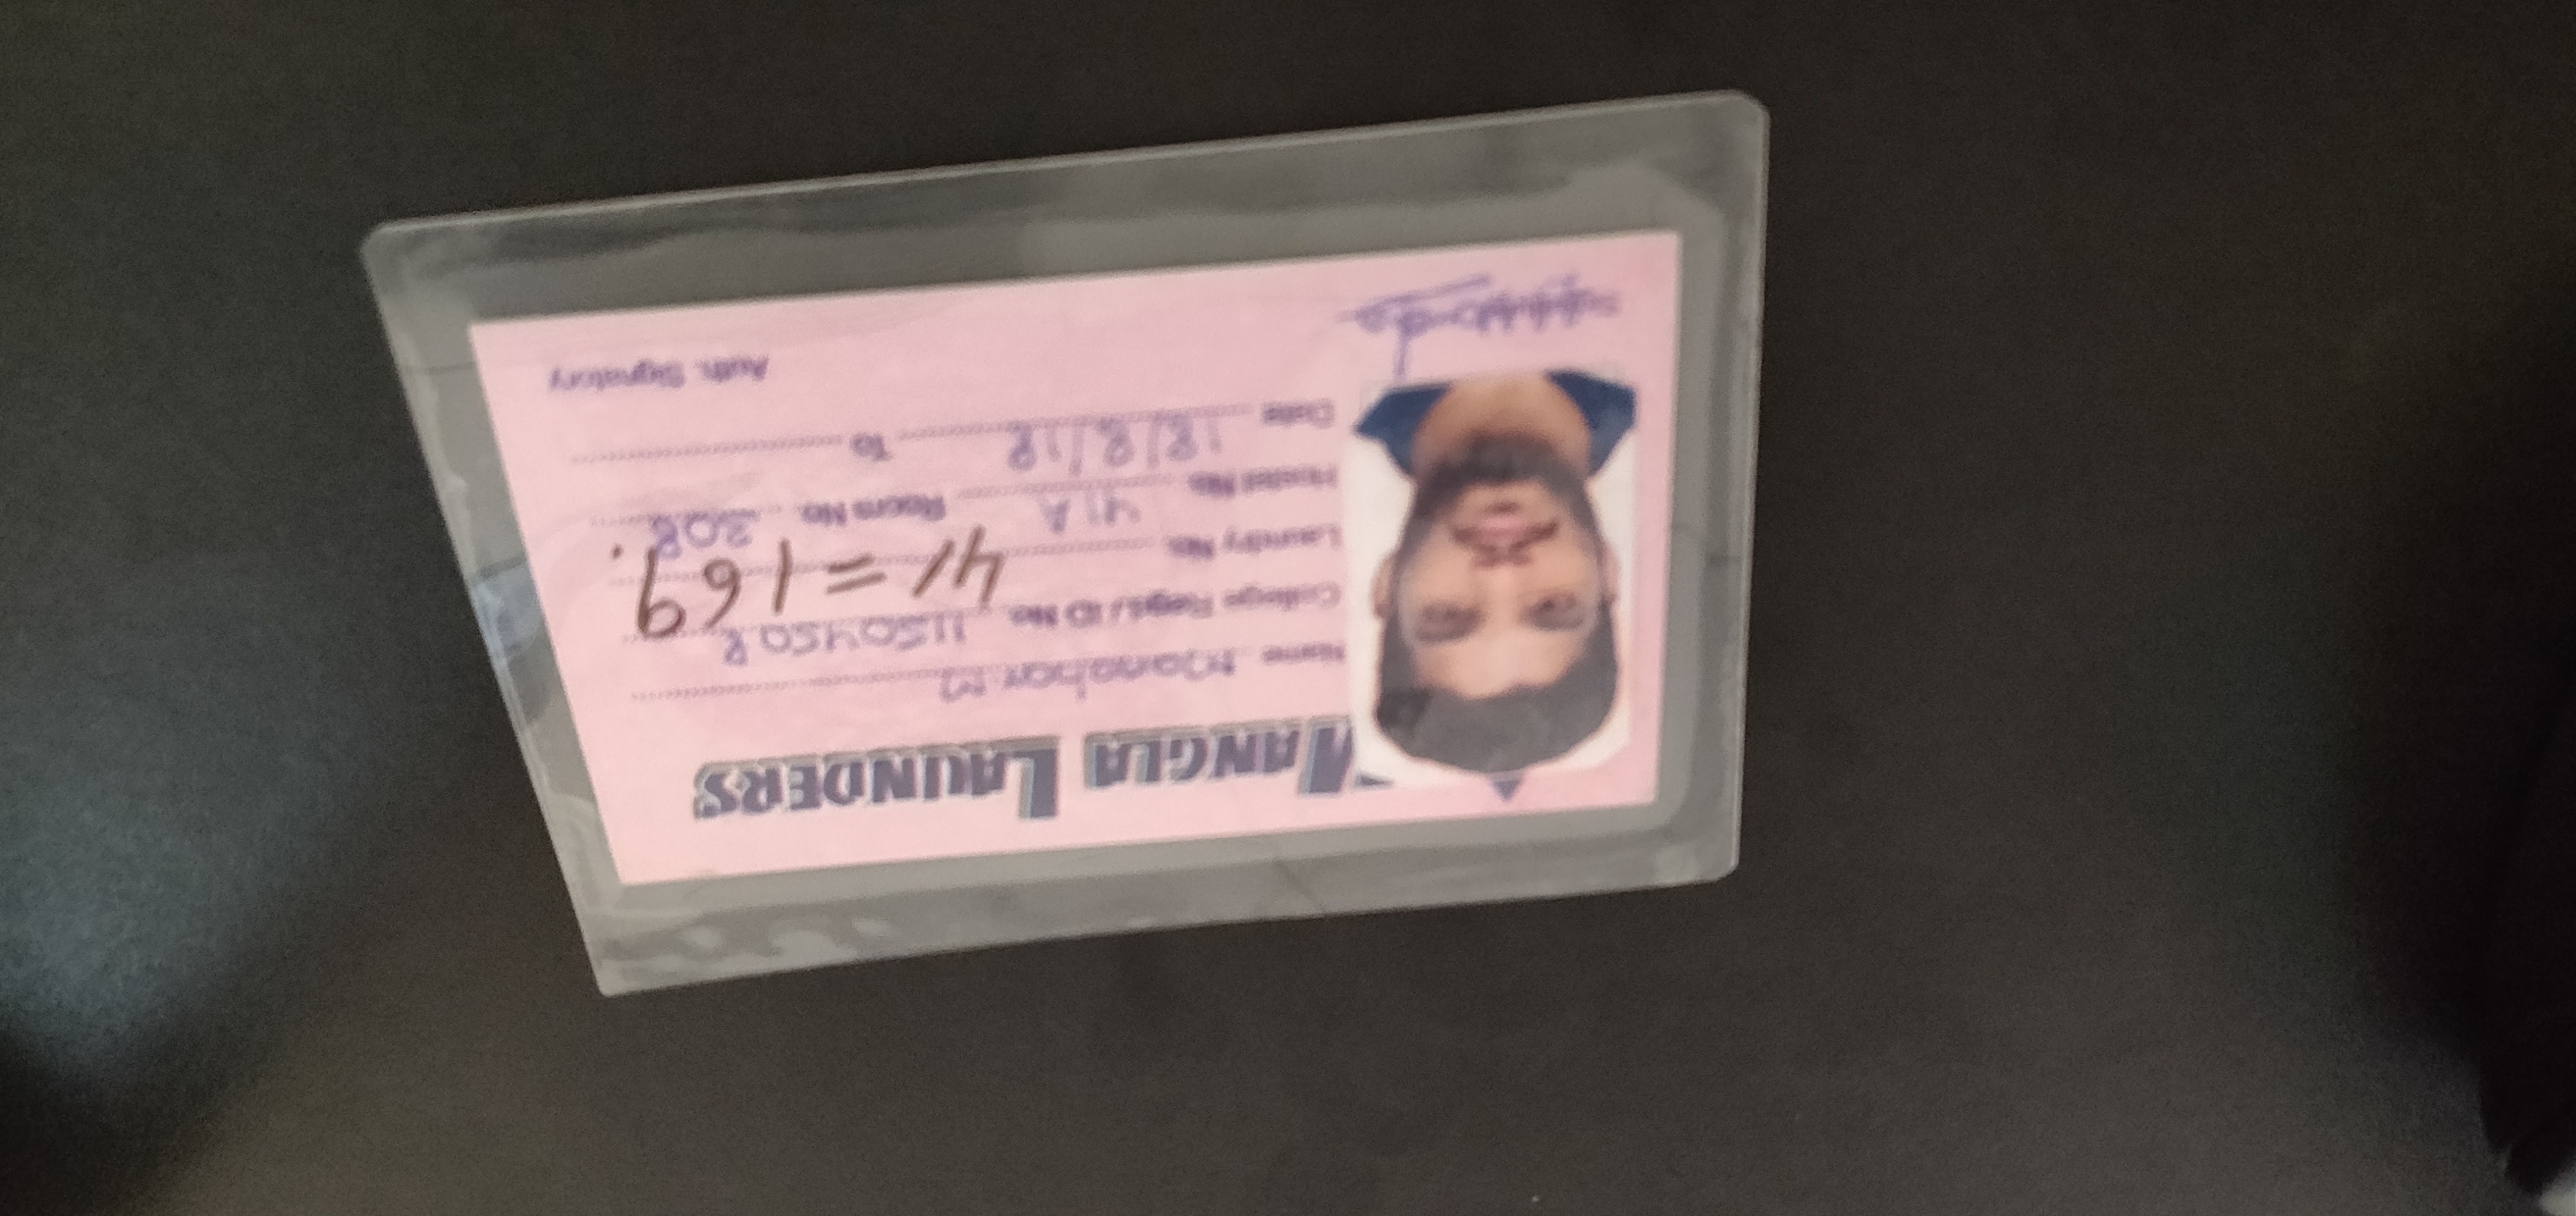 MANGLA LAUNDERS
Name Manohar M
College Regd./ ID No. 11504508
Laundry No. 41 = 169.
Hostel No. 41A Room No. 308
Date 18/8/18 To
Auth. Signatory